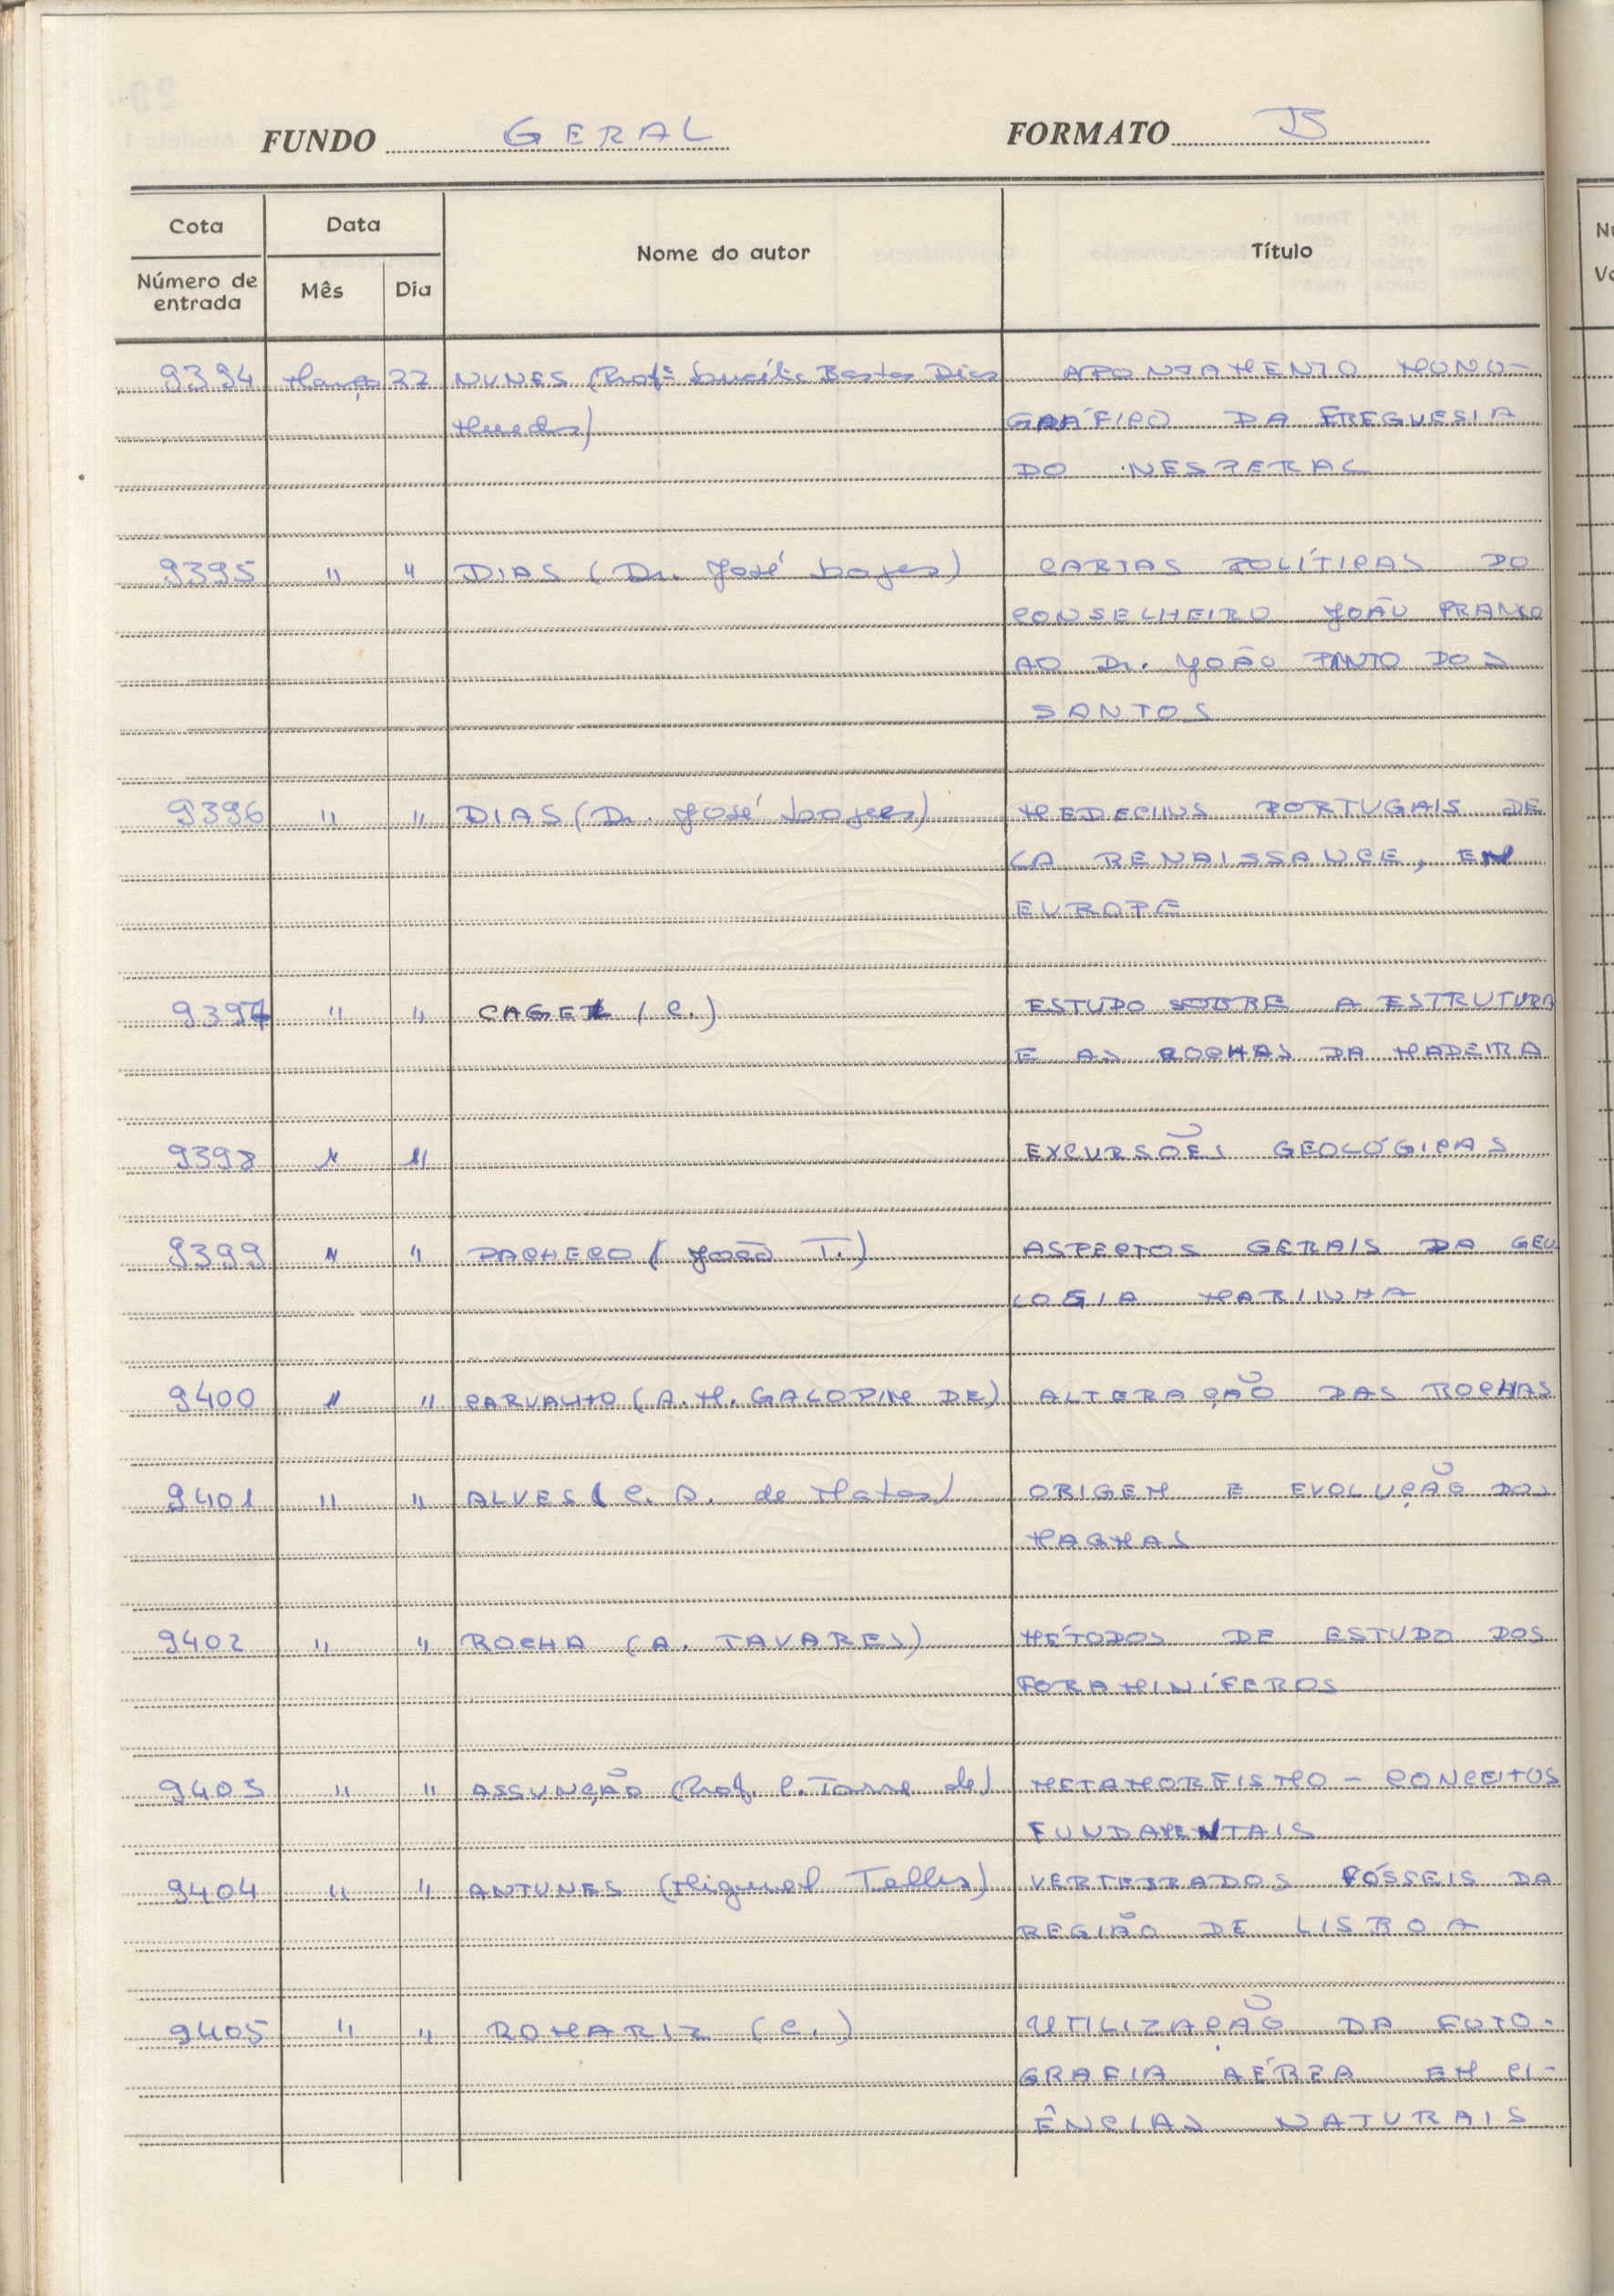 FUNDO GERAL FORMATO B
Cota Data Nome do autor Título
Número de entrada Mês Dia
9394 Março 22 NUNES (Profª Lucília Bastos Dias APONTAMENTO MONO-
GRÁFICO DA FREGUESIA
DO NESPERAL
9395 " " DIAS (Dr. José Lopes) CARTAS POLÍTICAS DO
CONSELHEIRO JOÃO FRANCO
AO Dr. JOÃO PINTO DOS
SANTOS
9396 " " DIAS (Dr. José Lopes) MEDECINS PORTUGAIS DE
LA RENAISSANCE, EN
EUROPE
9397 " " CAGEL (C.) ESTUDO SOBRE A ESTRUTURA
E AS ROCHAS DA MADEIRA
9398 " " EXCURSÕES GEOLÓGICAS
9399 " " PACHECO (João T.) ASPECTOS GERAIS DA GEO
LOGIA MARINHA
9400 " " CARVALHO (A. M. GALOPIM DE) ALTERAÇÃO DAS ROCHAS
9401 " " ALVES (C. A. de Matos) ORIGEM E EVOLUÇÃO DOS
MAGMAS
9402 " " ROCHA (A. TAVARES) MÉTODOS DE ESTUDO DOS
FORAMINÍFEROS
9403 " " ASSUNÇÃO (Prof. C. Torre de) METAMORFISMO - CONCEITOS
FUNDAMENTAIS
9404 " " ANTUNES (Miguel Telles) VERTEBRADOS FÓSSEIS DA
REGIÃO DE LISBOA
9405 " " ROMARIZ (C.) UTILIZAÇÃO DA FOTO-
GRAFIA AÉREA EM CI-
ÊNCIAS NATURAIS